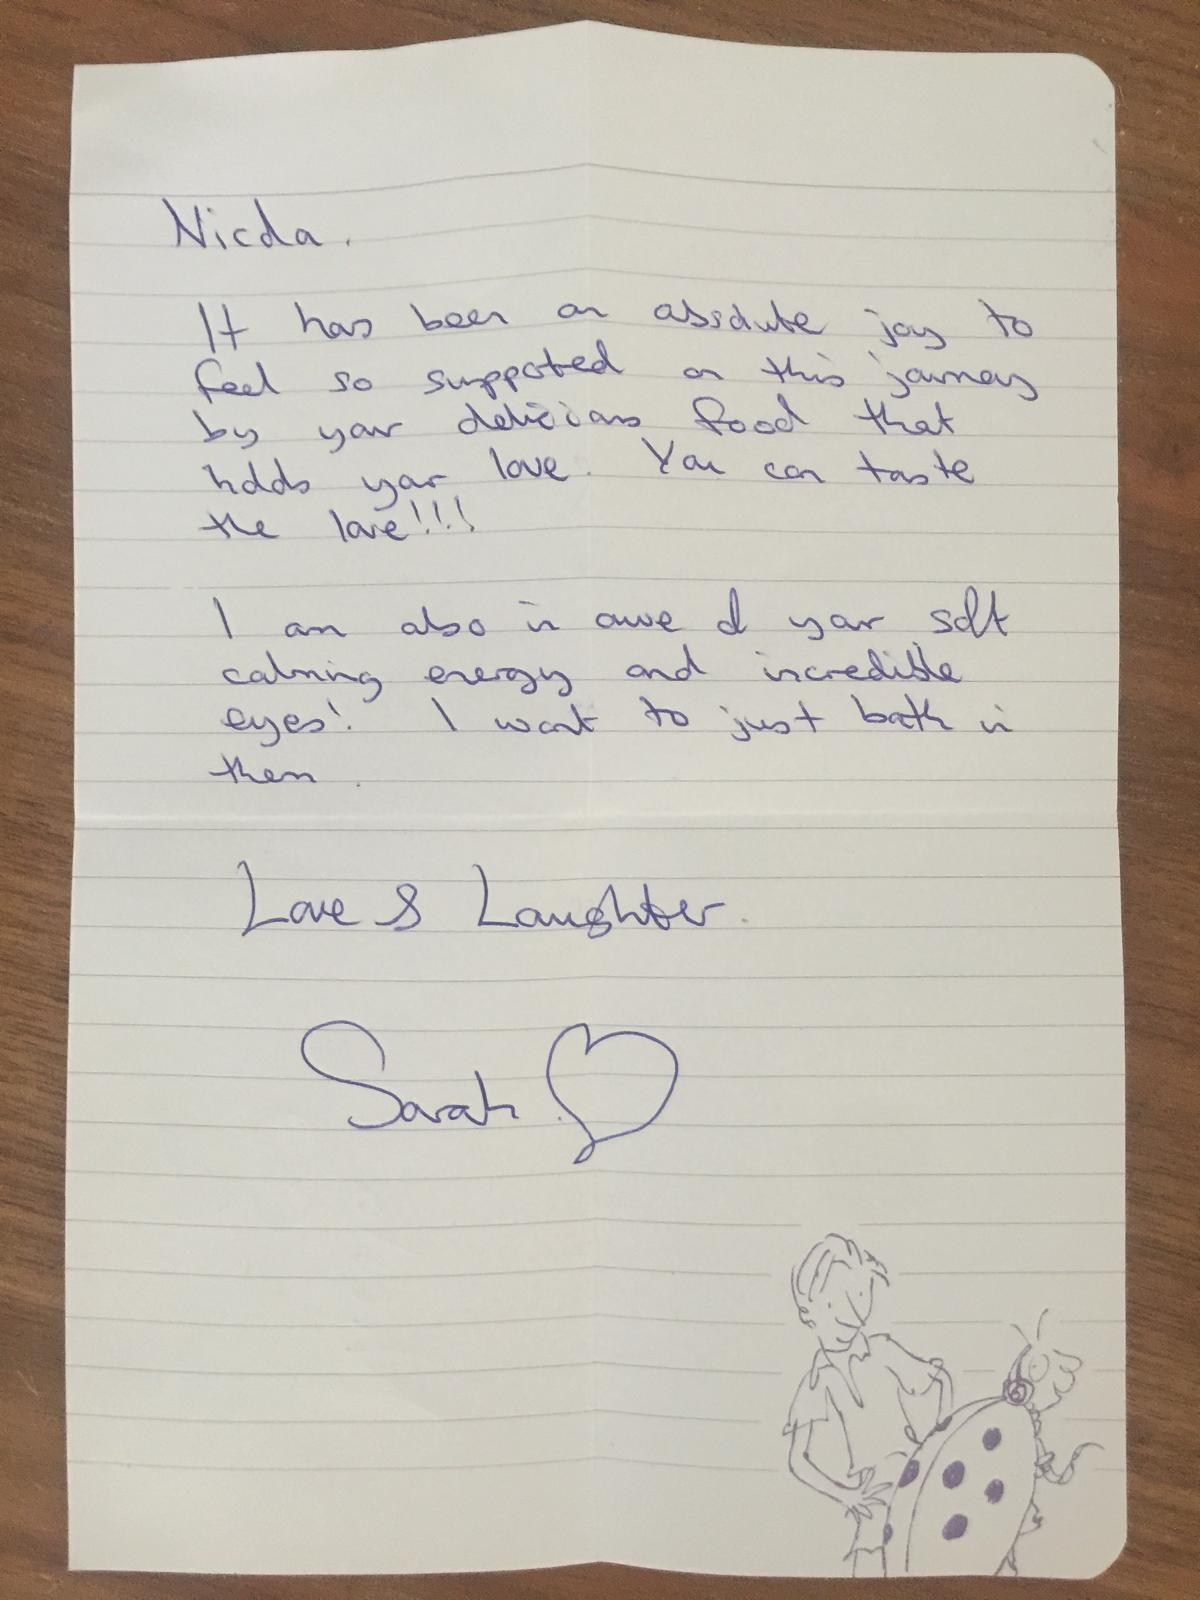 Nicola.
It has been an absolute joy to
feel so supported on this journey
by your delicious food that
holds your love. You can taste
the love!!!
I am also in awe of your soft
calming energy and incredible
eyes! I want to just bath in
them.
Love & Laughter.
Sarah